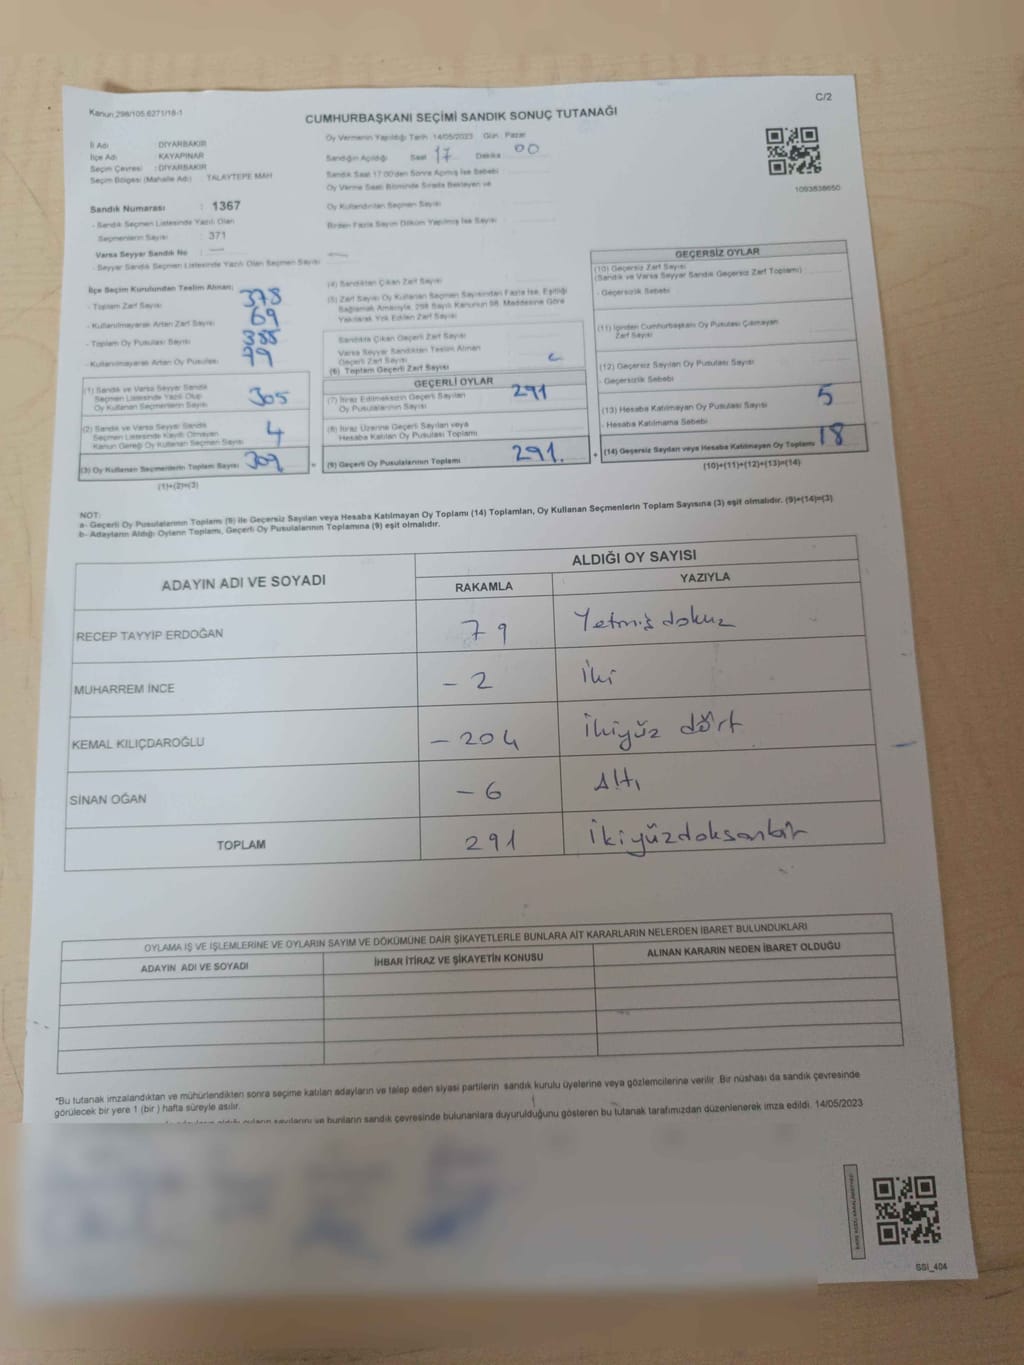 Kanun:298/105,6271/18-1
C/2
CUMHURBAŞKANI SEÇİMİ SANDIK SONUÇ TUTANAĞI
İl Adı : DİYARBAKIR
İlçe Adı : KAYAPINAR
Seçim Çevresi : DİYARBAKIR
Seçim Bölgesi (Mahalle Adı) : TALAYTEPE MAH
Sandık Numarası : 1367
- Sandık Seçmen Listesinde Yazılı Olan
Seçmenlerin Sayısı : 371
Varsa Seyyar Sandık No : —
- Seyyar Sandık Seçmen Listesinde Yazılı Olan Seçmen Sayısı —
Oy Vermenin Yapıldığı Tarih :14/05/2023 Gün : Pazar
Sandığın Açıldığı Saat 17 Dakika 00
Sandık Saat 17:00'den Sonra Açılmış İse Sebebi
Oy Verme Saati Bitiminde Sırada Bekleyen ve
Oy Kullandırılan Seçmen Sayısı
Birden Fazla Sayım Döküm Yapılmış İse Sayısı
1093838650
İlçe Seçim Kurulundan Teslim Alınan;
- Toplam Zarf Sayısı 378
- Kullanılmayarak Artan Zarf Sayısı 69
- Toplam Oy Pusulası Sayısı
- Kullanılmayarak Artan Oy Pusulası
(1) Sandık ve Varsa Seyyar Sandık
Seçmen Listesinde Yazılı Olup
Oy Kullanan Seçmenlerin Sayısı 305
(2) Sandık ve Varsa Seyyar Sandık
Seçmen Listesinde Kayıtlı Olmayan
Kanun Gereği Oy Kullanan Seçmen Sayısı 4
(3) Oy Kullanan Seçmenlerin Toplam Sayısı 309
(1)+(2)=(3)
(4) Sandıktan Çıkan Zarf Sayısı
(5) Zarf Sayısı Oy Kullanan Seçmen Sayısından Fazla İse, Eşitliği
Sağlamak Amacıyla, 298 Sayılı Kanunun 98. Maddesine Göre
Yakılarak Yok Edilen Zarf Sayısı
Sandıkta Çıkan Geçerli Zarf Sayısı
Varsa Seyyar Sandıktan Teslim Alınan
Geçerli Zarf Sayısı
(6) Toplam Geçerli Zarf Sayısı
GEÇERLİ OYLAR
(7) İtiraz Edilmeksizin Geçerli Sayılan
Oy Pusulalarının Sayısı 291
(8) İtiraz Üzerine Geçerli Sayılan veya
Hesaba Katılan Oy Pusulası Toplamı
(9) Geçerli Oy Pusulalarının Toplamı 291.
GEÇERSİZ OYLAR
(10) Geçersiz Zarf Sayısı
(Sandık ve Varsa Seyyar Sandık Geçersiz Zarf Toplamı)
- Geçersizlik Sebebi
(11) İçinden Cumhurbaşkanı Oy Pusulası Çıkmayan
Zarf Sayısı
(12) Geçersiz Sayılan Oy Pusulası Sayısı
- Geçersizlik Sebebi
(13) Hesaba Katılmayan Oy Pusulası Sayısı 5
- Hesaba Katılmama Sebebi
(14) Geçersiz Sayılan veya Hesaba Katılmayan Oy Toplamı 18
(10)+(11)+(12)+(13)=(14)
NOT:
a- Geçerli Oy Pusulalarının Toplamı (9) ile Geçersiz Sayılan veya Hesaba Katılmayan Oy Toplamı (14) Toplamları, Oy Kullanan Seçmenlerin Toplam Sayısına (3) eşit olmalıdır. (9)+(14)=(3)
b- Adayların Aldığı Oyların Toplamı, Geçerli Oy Pusulalarının Toplamına (9) eşit olmalıdır.
ADAYIN ADI VE SOYADI
ALDIĞI OY SAYISI
RAKAMLA YAZIYLA
RECEP TAYYİP ERDOĞAN 79 Yetmiş dokuz
MUHARREM İNCE - 2 İki
KEMAL KILIÇDAROĞLU - 204 İkiyüz dört
SİNAN OĞAN - 6 Altı
TOPLAM 291 İkiyüzdoksanbir
OYLAMA İŞ VE İŞLEMLERİNE VE OYLARIN SAYIM VE DÖKÜMÜNE DAİR ŞİKAYETLERLE BUNLARA AİT KARARLARIN NELERDEN İBARET BULUNDUKLARI
ADAYIN ADI VE SOYADI İHBAR İTİRAZ VE ŞİKAYETİN KONUSU ALINAN KARARIN NEDEN İBARET OLDUĞU
*Bu tutanak imzalandıktan ve mühürlendikten sonra seçime katılan adayların ve talep eden siyasi partilerin sandık kurulu üyelerine veya gözlemcilerine verilir. Bir nüshası da sandık çevresinde
görülecek bir yere 1 (bir ) hafta süreyle asılır.
aldığı oyların sayılarını ve bunların sandık çevresinde bulunanlara duyurulduğunu gösteren bu tutanak tarafımızdan düzenlenerek imza edildi. 14/05/2023
SSİ_404